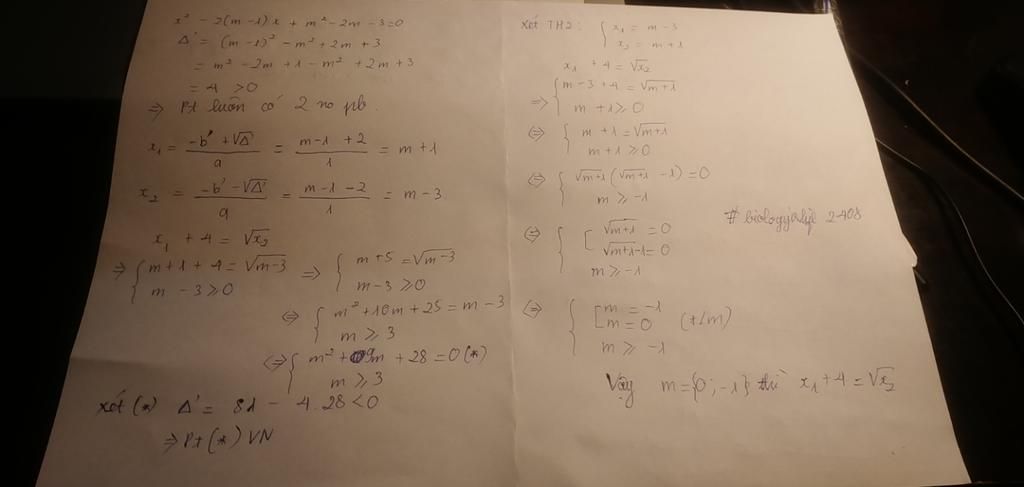 x² - 2(m-1)x + m² - 2m - 3 = 0
Δ' = (m-1)² - m² + 2m + 3
= m² - 2m + 1 - m² + 2m + 3
= 4 > 0
⇒ Pt luôn có 2 no pb.
x₁ = (-b' + √Δ')/a = (m-1+2)/1 = m+1
x₂ = (-b' - √Δ')/a = (m-1-2)/1 = m-3
x₁ + 4 = √x₂
⇒ { m+1+4 = √m-3 ⇒ { m+5 = √m-3
m-3 ≥ 0 m-3 ≥ 0
⇔ { m² + 10m + 25 = m-3
m ≥ 3
⇔ { m² + 9m + 28 = 0 (*)
m ≥ 3
xét (*) Δ' = 81 - 4.28 < 0
⇒ Pt (*) VN
Xét TH2: { x₁ = m-3
x₂ = m+1
x₁ + 4 = √x₂
⇒ { m-3+4 = √m+1
m+1 ≥ 0
⇔ { m+1 = √m+1
m+1 ≥ 0
⇔ { √m+1 (√m+1 - 1) = 0
m ≥ -1
⇔ { [ √m+1 = 0
√m+1 - 1 = 0
m ≥ -1
⇔ { [ m = -1
m = 0 (t/m)
m ≥ -1
Vậy m = {0; -1} thì x₁ + 4 = √x₂